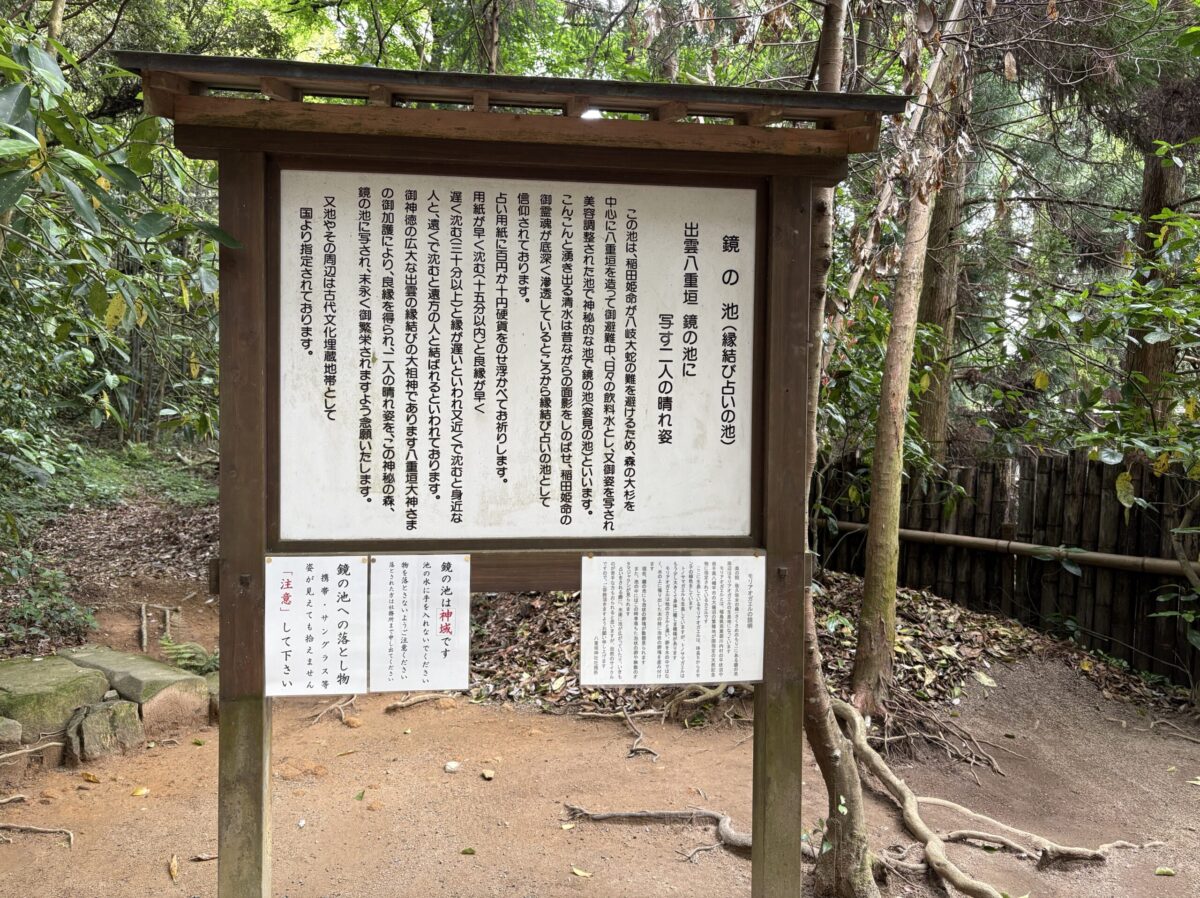 鏡の池(縁結び占いの池)
出雲八重垣 鏡の池に
写す二人の晴れ姿
この池は、稲田姫命が八岐大蛇の難を避けるため、森の大杉を
中心に八重垣を造って御避難中、日々の飲料水とし、又御姿を写され
美容調整された池で神秘的な池で鏡の池(姿見の池)といいます。
こんこんと湧き出る清水は昔ながらの面影をしのばせ、稲田姫命の
御霊魂が底深く滲透しているところから縁結び占いの池として
信仰されております。
占い用紙に百円か十円硬貨をのせ浮かべてお祈りします。
用紙が早く沈む(十五分以内)と良縁が早く
遅く沈む(三十分以上)と縁が遅いといわれ又近くで沈むと身近な
人と、遠くで沈むと遠方の人と結ばれるといわれております。
御神徳の広大な出雲の縁結びの大祖神であります八重垣大神さま
の御加護により、良縁を得られ、二人の晴れ姿を、この神秘の森、
鏡の池に写され、末永く御繁栄されますよう念願いたします。
又池やその周辺は古代文化埋蔵地帯として
国より指定されております。
鏡の池は神域です
池の水に手を入れないでください
物を落とさないようご注意ください
落とされたときは社務所まで申し出てください
鏡の池への落とし物
携帯・サングラス等
姿が見えても拾えません
「注意」して下さい
モリアオガエルの説明
八重垣神社社務所